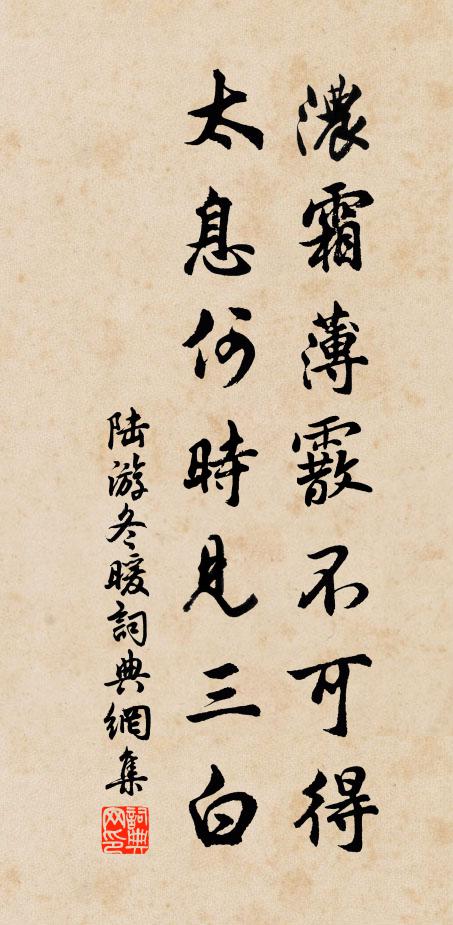 濃霜薄霰不可得
太息何時見三白
陸游冬暖詞典網集
詞典網印